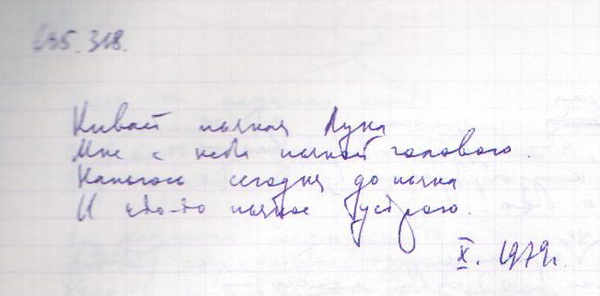 695.318.
Кивает пьяная Луна
Мне с неба пьяной головою.
Напьюсь сегодня до пьяна
И что-то пьяное устрою.
X. 1979г.